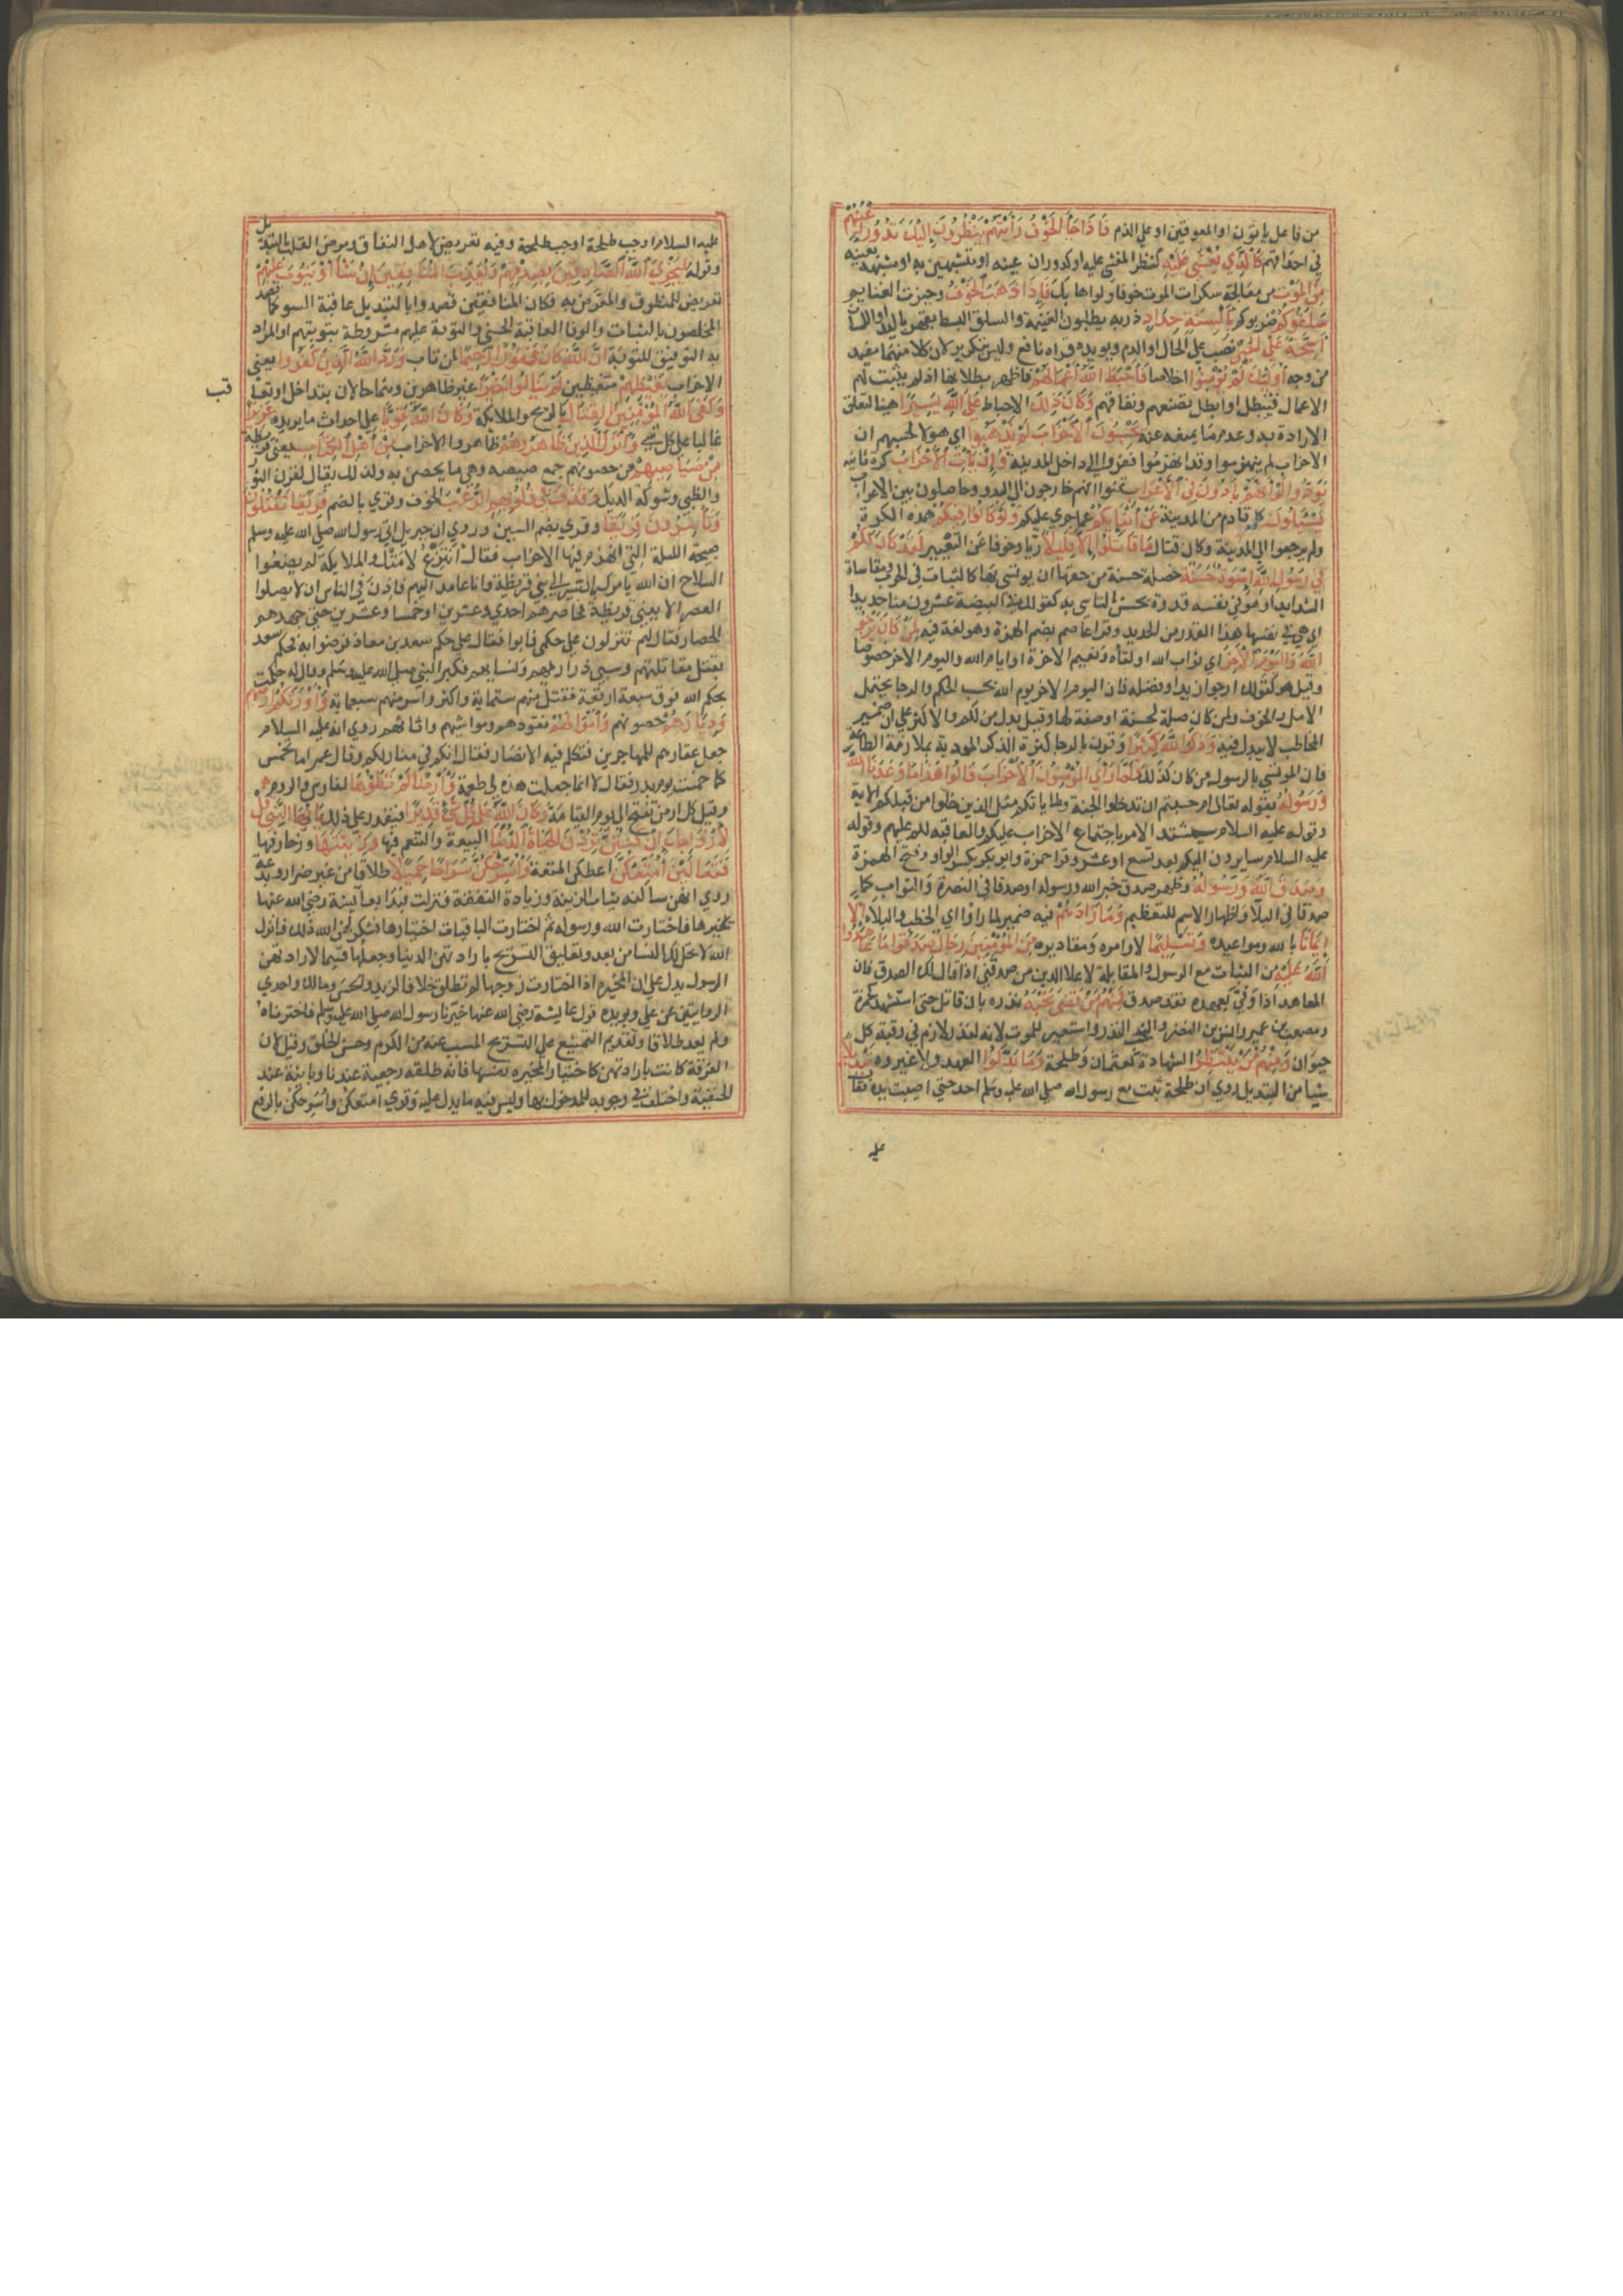 من فاعل ياتون او المعوقين او علي الذم فَاِذَا جَآءَ الْخَوْفُ رَأَيْتَهُمْ يَنْظُرُونَ اِلَيْكَ تَدُورُ اَعْيُنُهُمْ
في احداقهم كَالَّذِي يُغْشٰى عَلَيْهِ كنظر المغشي عليه او كدوران عينه او مشبهين به او مشبهة بعينه
مِنَ الْمَوْتِ من معالجة سكرات الموت خوفا ولواذا بك فَاِذَا ذَهَبَ الْخَوْفُ وحيزت الغنايم
سَلَقُوكُمْ ضربوكم بِاَلْسِنَةٍ حِدَادٍ ذربة يطلبون الغنيمة والسلق البسط بقهر باليد او اللسان
اَشِحَّةً عَلَى الْخَيْرِ نصب علي الحال او الذم ويويده قراة الرفع وليس بتكرير لان كلا منهما مقيد
من وجه اُولٰئِكَ لَمْ يُؤْمِنُوا اخلاصا فَاَحْبَطَ اللّٰهُ اَعْمَالَهُمْ فاظهر بطلانها اذ لم يثبت لهم
الاعمال فتبطل او ابطل تصنعهم ونفاقهم وَكَانَ ذٰلِكَ الاحباط عَلَى اللّٰهِ يَسِيرًا هينا لتعلق
الارادة به وعدم ما يمنعه عنه يَحْسِبُونَ الْاَحْزَابَ لَمْ يَذْهَبُوا اي هولا لجبنهم ان
الاحزاب لم ينهزموا وقد انهزموا ففروا الي داخل المدينة وَاِنْ يَأْتِ الْاَحْزَابُ كرة ثانية
يَوَدُّوا لَوْ اَنَّهُمْ بَادُونَ فِي الْاَعْرَابِ تمنوا انهم خارجون الي البدو وحاصلون بين الاعراب
يَسْئَلُونَ كل قادم من المدينة عَنْ اَنْبَائِكُمْ عما جري عليكم وَلَوْ كَانُوا فِيكُمْ هذه الكرة
ولم يرجعوا الي المدينة وكان قتال مَا قَاتَلُوا اِلَّا قَلِيلًا ريا وخوفا عن التعيير لَقَدْ كَانَ لَكُمْ
فِي رَسُولِ اللّٰهِ اُسْوَةٌ حَسَنَةٌ خصلة حسنة من حقها ان يوتسي بها كالثبات في الحرب ومقاساة
الشدايد او هو في نفسه قدوة يحسن التاسي به كقولك في البيضة عشرون منا حديدا
اي هي في نفسها هذا القدر من الحديد وقرا عاصم بضم الهمزة وهو لغة فيه لِمَنْ كَانَ يَرْجُو
اللّٰهَ وَالْيَوْمَ الْاٰخِرَ اي ثواب الله او لقاه ونعيم الاخرة او ايام الله واليوم الاخر خصوصا
وقيل هو كقولك ارجو زيدا وفضله فان اليوم الاخر يوم الله بحسب الحكم والرجا يحتمل
الامل والخوف ولمن كان صلة لحسنة او صفة لها وقيل بدل من لكم والاكثر علي ان ضمير
المخاطب لا يبدل منه وَذَكَرَ اللّٰهَ كَثِيرًا وقرن بالرجا كثرة الذكر المودية بملازمة الطاعة
فان الموتسي بالرسول من كان كذلك وَلَمَّا رَاَى الْمُؤْمِنُونَ الْاَحْزَابَ قَالُوا هٰذَا مَا وَعَدَنَا اللّٰهُ
وَرَسُولُهُ بقوله تعالي ام حسبتم ان تدخلوا الجنة ولما ياتكم مثل الذين خلوا من قبلكم الاية
وقوله عليه السلام سيشتد الامر باجتماع الاحزاب عليكم والعاقبة لكم عليهم وقوله
عليه السلام سايرون اليكم بعد تسع او عشر وقرا حمزة وابو بكر بكسر الراو وفتح الهمزة
وَصَدَقَ اللّٰهُ وَرَسُولُهُ وظهر صدق خبر الله ورسوله او صدقا في النصرة والثواب كما
صدقا في البلا واظهار الاسم للتعظيم وَمَا زَادَهُمْ فيه ضمير لما راوا اي الخطب والبلا اِلَّا
اِيمَانًا بالله ومواعيده وَتَسْلِيمًا لاوامره ومقاديره مِنَ الْمُؤْمِنِينَ رِجَالٌ صَدَقُوا مَا عَاهَدُوا
اللّٰهَ عَلَيْهِ من الثبات مع الرسول والمقابلة لاعلا الدين من صدقني اذا قال لك الصدق فان
المعاهد اذا وفي بعهده فقد صدق فَمِنْهُمْ مَنْ قَضٰى نَحْبَهُ نذره بان قاتل حتي استشهد كحمزة
ومصعب بن عمير وانس بن النضر والنحب النذر واستعير للموت لانه كنذر لازم في رقبة كل
حيوان وَمِنْهُمْ مَنْ يَنْتَظِرُ الشهادة كعثمان وطلحة وَمَا بَدَّلُوا العهد ولا غيروه تَبْدِيلًا
شيا من التبديل روي ان طلحة ثبت مع رسول الله صلي الله عليه وسلم احد حتي اصيبت يده فقا
عليه
عليه السلام اوجب طلحة اوجب طلحة وفيه تعريض لاهل النفاق ومرض القلب بالتبديل
وقوله لِيَجْزِيَ اللّٰهُ الصَّادِقِينَ بِصِدْقِهِمْ وَيُعَذِّبَ الْمُنَافِقِينَ اِنْ شَآءَ اَوْ يَتُوبَ عَلَيْهِمْ
تعريض للمنطوق والمعرض به فكان المنافقين قصدوا بالتبديل عاقبة السو كما قصد
المخلصون بالثبات والوفا العاقبة الحسني والتوبة عليهم مشروطة بتوبتهم او المراد
به التوفيق للتوبة اِنَّ اللّٰهَ كَانَ غَفُورًا رَحِيمًا لمن تاب وَرَدَّ اللّٰهُ الَّذِينَ كَفَرُوا يعني
الاحزاب بِغَيْظِهِمْ متغيظين لَمْ يَنَالُوا خَيْرًا غير ظاهرين وهما حالان بتداخل او تعا
قب
وَكَفَى اللّٰهُ الْمُؤْمِنِينَ الْقِتَالَ بالريح والملايكة وَكَانَ اللّٰهُ قَوِيًّا علي احداث ما يريده عَزِيزًا
غالبا علي كل شي وَاَنْزَلَ الَّذِينَ ظَاهَرُوهُمْ ظاهروا الاحزاب مِنْ اَهْلِ الْكِتَابِ يعني قريظة
مِنْ صَيَاصِيهِمْ من حصونهم جمع صيصه وهي ما يحصن به ولذلك يقال لقرن الثور
والظبي وشوكة الديك وَقَذَفَ فِي قُلُوبِهِمُ الرُّعْبَ الخوف وقري بالضم فَرِيقًا تَقْتُلُونَ
وَتَأْسِرُونَ فَرِيقًا وقري بضم السين وروي ان جبريل اتي رسول الله صلي الله عليه وسلم
صبيحة الليلة التي انهزم فيها الاحزاب فقال اتنزع لامتك والملايكة لم يضعوا
السلاح ان الله يامرك بالسير الي بني قريظة وانا عامد اليهم فاذن في الناس ان لا يصلوا
العصر الا ببني قريظة فحاصرهم احدي وعشرين او خمسا وعشرين حتي جهدهم
الحصار فقال لهم تنزلون علي حكمي فابوا فقال علي حكم سعد بن معاذ فرضوا به فحكم سعد
بقتل مقاتلتهم وسبي ذراريهم ونسايهم فكبر النبي صلي الله عليه وسلم وقال له حكمت
بحكم الله فوق سبعة ارقعة فقتل منهم ستماية واكثر واسر منهم سبعماية وَاَوْرَثَكُمْ اَرْضَهُمْ
وَدِيَارَهُمْ حصونهم وَاَمْوَالَهُمْ نقودهم ومواشيهم واثاثهم روي انه عليه السلام
جعل عقارهم للمهاجرين فتكلم فيه الانصار فقال انكم في منازلكم وقال عمر اما تخمس
كما خمست يوم بدر فقال لا انما جعلت هذه لي طعمة وَاَرْضًا لَمْ تَطَئُوهَا كفارس والروم
وقيل كل ارض تفتح الي يوم القيامة وَكَانَ اللّٰهُ عَلٰى كُلِّ شَيْءٍ قَدِيرًا فيقدر علي ذلك يَا اَيُّهَا النَّبِيُّ قُلْ
لِاَزْوَاجِكَ اِنْ كُنْتُنَّ تُرِدْنَ الْحَيٰوةَ الدُّنْيَا السعة والتنعم فيها وَزِينَتَهَا وزخارفها
فَتَعَالَيْنَ اُمَتِّعْكُنَّ اعطكن المتعة وَاُسَرِّحْكُنَّ سَرَاحًا جَمِيلًا طلاقا من غير ضرار وبدعة
روي انهن سالنه ثياب الزينة وزيادة النفقة فنزلت فبدا بعايشة رضي الله عنها
فخيرها فاختارت الله ورسوله ثم اختارت الباقيات اختيارها فشكر لهن الله ذلك فانزل
الله لا يحل لك النسا من بعد وتعليق التسريح بارادتهن الدنيا وجعلها قسيما لارادتهن
الرسول يدل علي ان المخيرة اذا اختارت زوجها لم تطلق خلافا لزيد والحسن ومالك واحدي
الروايتين عن علي ويويده قول عايشة رضي الله عنها خيرنا رسول الله صلي الله عليه وسلم فاخترناه
ولم يعد طلاقا وتقديم التمتيع علي التسريح المسبب عنه من الكرم وحسن الخلق وقيل لان
الفرقة كانت بارادتهن كاختيار المخيرة نفسها فانه طلقة رجعية عندنا وباينة عند
الحنفية واختلف في وجوبه للمدخول بها وليس فيه ما يدل عليه وقري امتعكن واسرحكن بالرفع